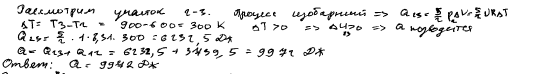 Рассмотрим участок 2-3. Процесс изобарный => Q₂₃ = 5/2 pΔV = 5/2 νRΔT
ΔT = T₃-T₂ = 900-600 = 300 K ΔT > 0 => ΔU > 0 => Q подводится
Q₂₃ = 5/2 · 1 · 8,31 · 300 = 6232,5 Дж
Q = Q₂₃ + Q₁₂ = 6232,5 + 3739,5 = 9972 Дж
Ответ: Q = 9972 Дж